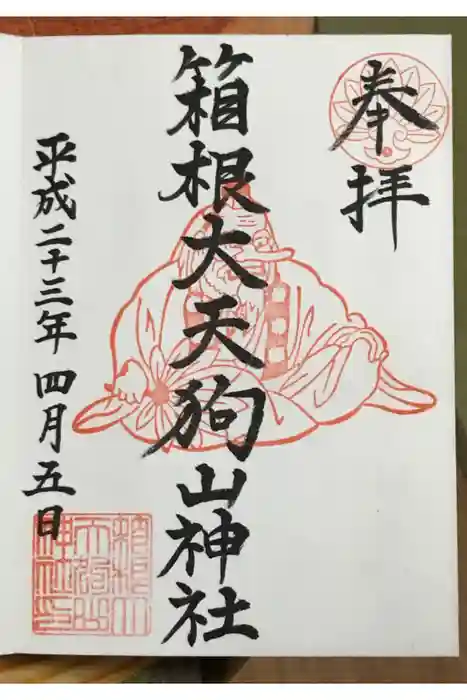 奉拝
箱根大天狗山神社
平成二十三年四月五日